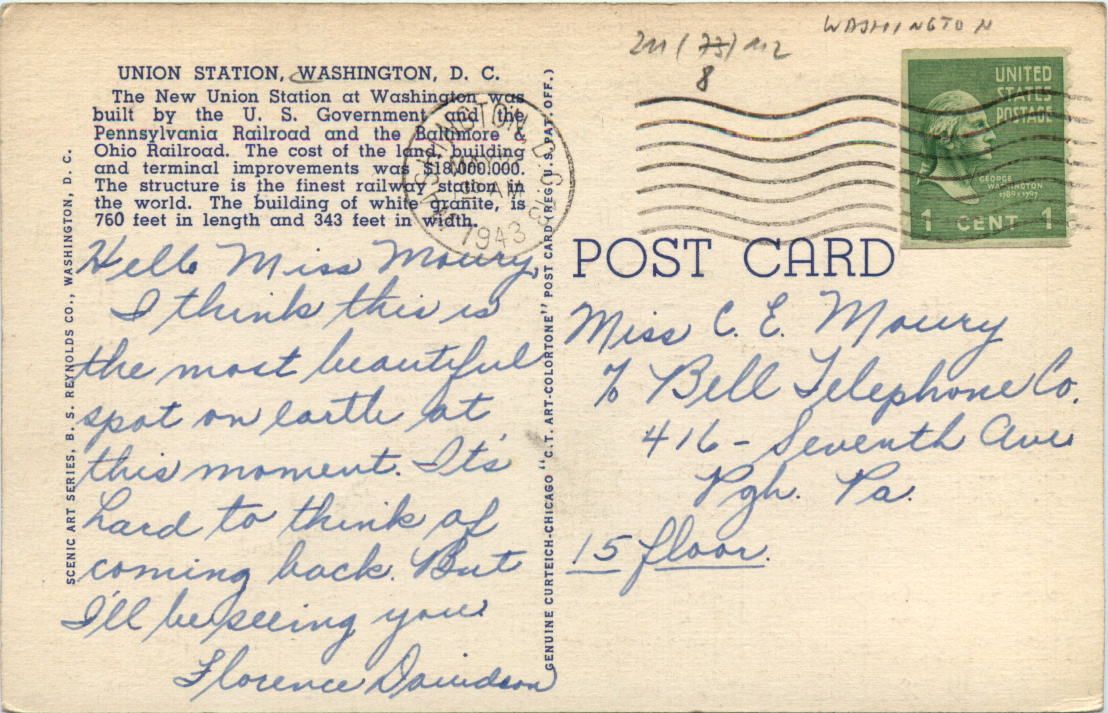 WASHINGTON
UNION STATION, WASHINGTON, D. C.
The New Union Station at Washington was
built by the U. S. Government and the
Pennsylvania Railroad and the Baltimore &
Ohio Railroad. The cost of the land, building
and terminal improvements was $18,000.000.
The structure is the finest railway station in
the world. The building of white granite, is
760 feet in length and 343 feet in width.
Hello Miss Moury,
I think this is
the most beautiful
spot on earth at
this moment. It's
hard to think of
coming back. But
I'll be seeing you.
Florence Davidson
SCENIC ART SERIES, B. S. REYNOLDS CO., WASHINGTON, D. C.
GENUINE CURTEICH-CHICAGO "C.T. ART-COLORTONE" POST CARD (REG. U.S. PAT. OFF.)
WASHINGTON, D.C.
1943
UNITED
STATES
POSTAGE
GEORGE
WASHINGTON
1789-1797
1 CENT 1
POST CARD
Miss C. E. Moury
% Bell Telephone Co.
416 - Seventh Ave
Pgh. Pa.
15 floor.